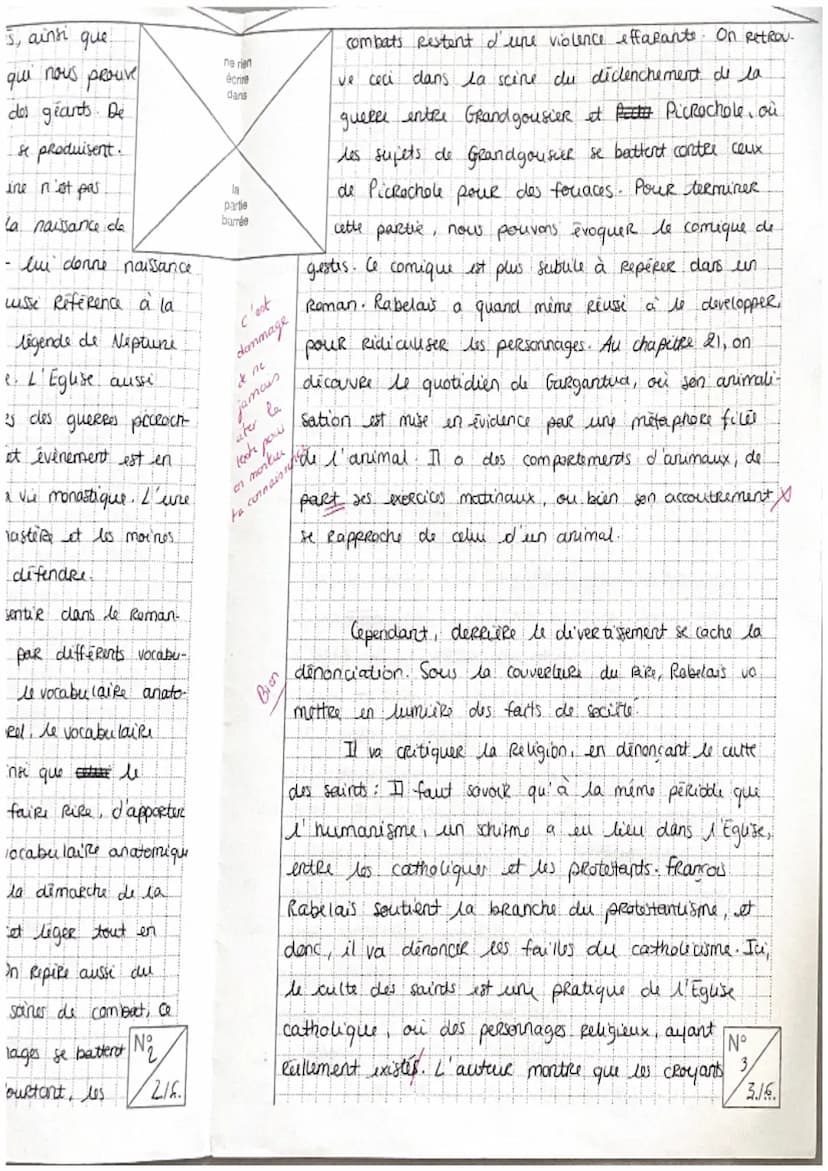 s, ainsi que
qui nous prouve
des géants. De
se produisent.
ine n'est pas
la naissance de
- lui donne naissance
ussi Référence à la
légende de Neptune
e. L'Eglise aussi
es des guerres picroch-
et évènement est en
a vie monastique. L'une
nastère et les moines
défendre.
sentir dans le Roman.
par différents vocabu-
le vocabulaire anato-
rel, le vocabulaire
nsi que le
faire rire, d'apporter
vocabulaire anatomique
la démarche de la
et léger tout en
On repère aussi du
scènes de combat, ce
nages se battent
ourtant, les
N° 2
2/6.
ne rien
écrire
dans
la
partie
barrée
combats restent d'une violence effarante. On retrou-
ve ceci dans la scène du déclenchement de la
guerre entre Grandgousier et Picrochole, où
les sujets de Grandgousier se battent contre ceux
de Picrochole pour des fouaces. Pour terminer
cette partie, nous pouvons évoquer le comique de
gestes. Ce comique est plus subtile à repérer dans un
Roman. Rabelais a quand même réussi à le developper,
pour ridiculiser les personnages. Au chapitre 21, on
découvre le quotidien de Gargantua, où son animali-
sation est mise en évidence par une métaphore filée
de l'animal. Il a des comportements d'animaux, de
part ses exercices matinaux, ou bien son accoutrement
se rapproche de celui d'un animal.
c'est
dommage
de ne
jamais
citer le
texte pour
en montrer
ta connaissance
Cependant, derrière le divertissement se cache la
dénonciation. Sous la couverture du rire, Rabelais va
mettre en lumière des faits de société.
Bien
Il va critiquer la Religion, en dénonçant le culte
des saints : Il faut savoir qu'à la même période que
l'humanisme, un schisme a eu lieu dans l'Eglise,
entre les catholiques et les protestants. François
Rabelais soutient la branche du protestantisme, et
donc, il va dénoncer les failles du catholicisme. Ici,
le culte des saints est une pratique de l'Eglise
catholique, où des personnages religieux, ayant
réellement existés. L'auteur montre que les croyants
N° 3
3/6.